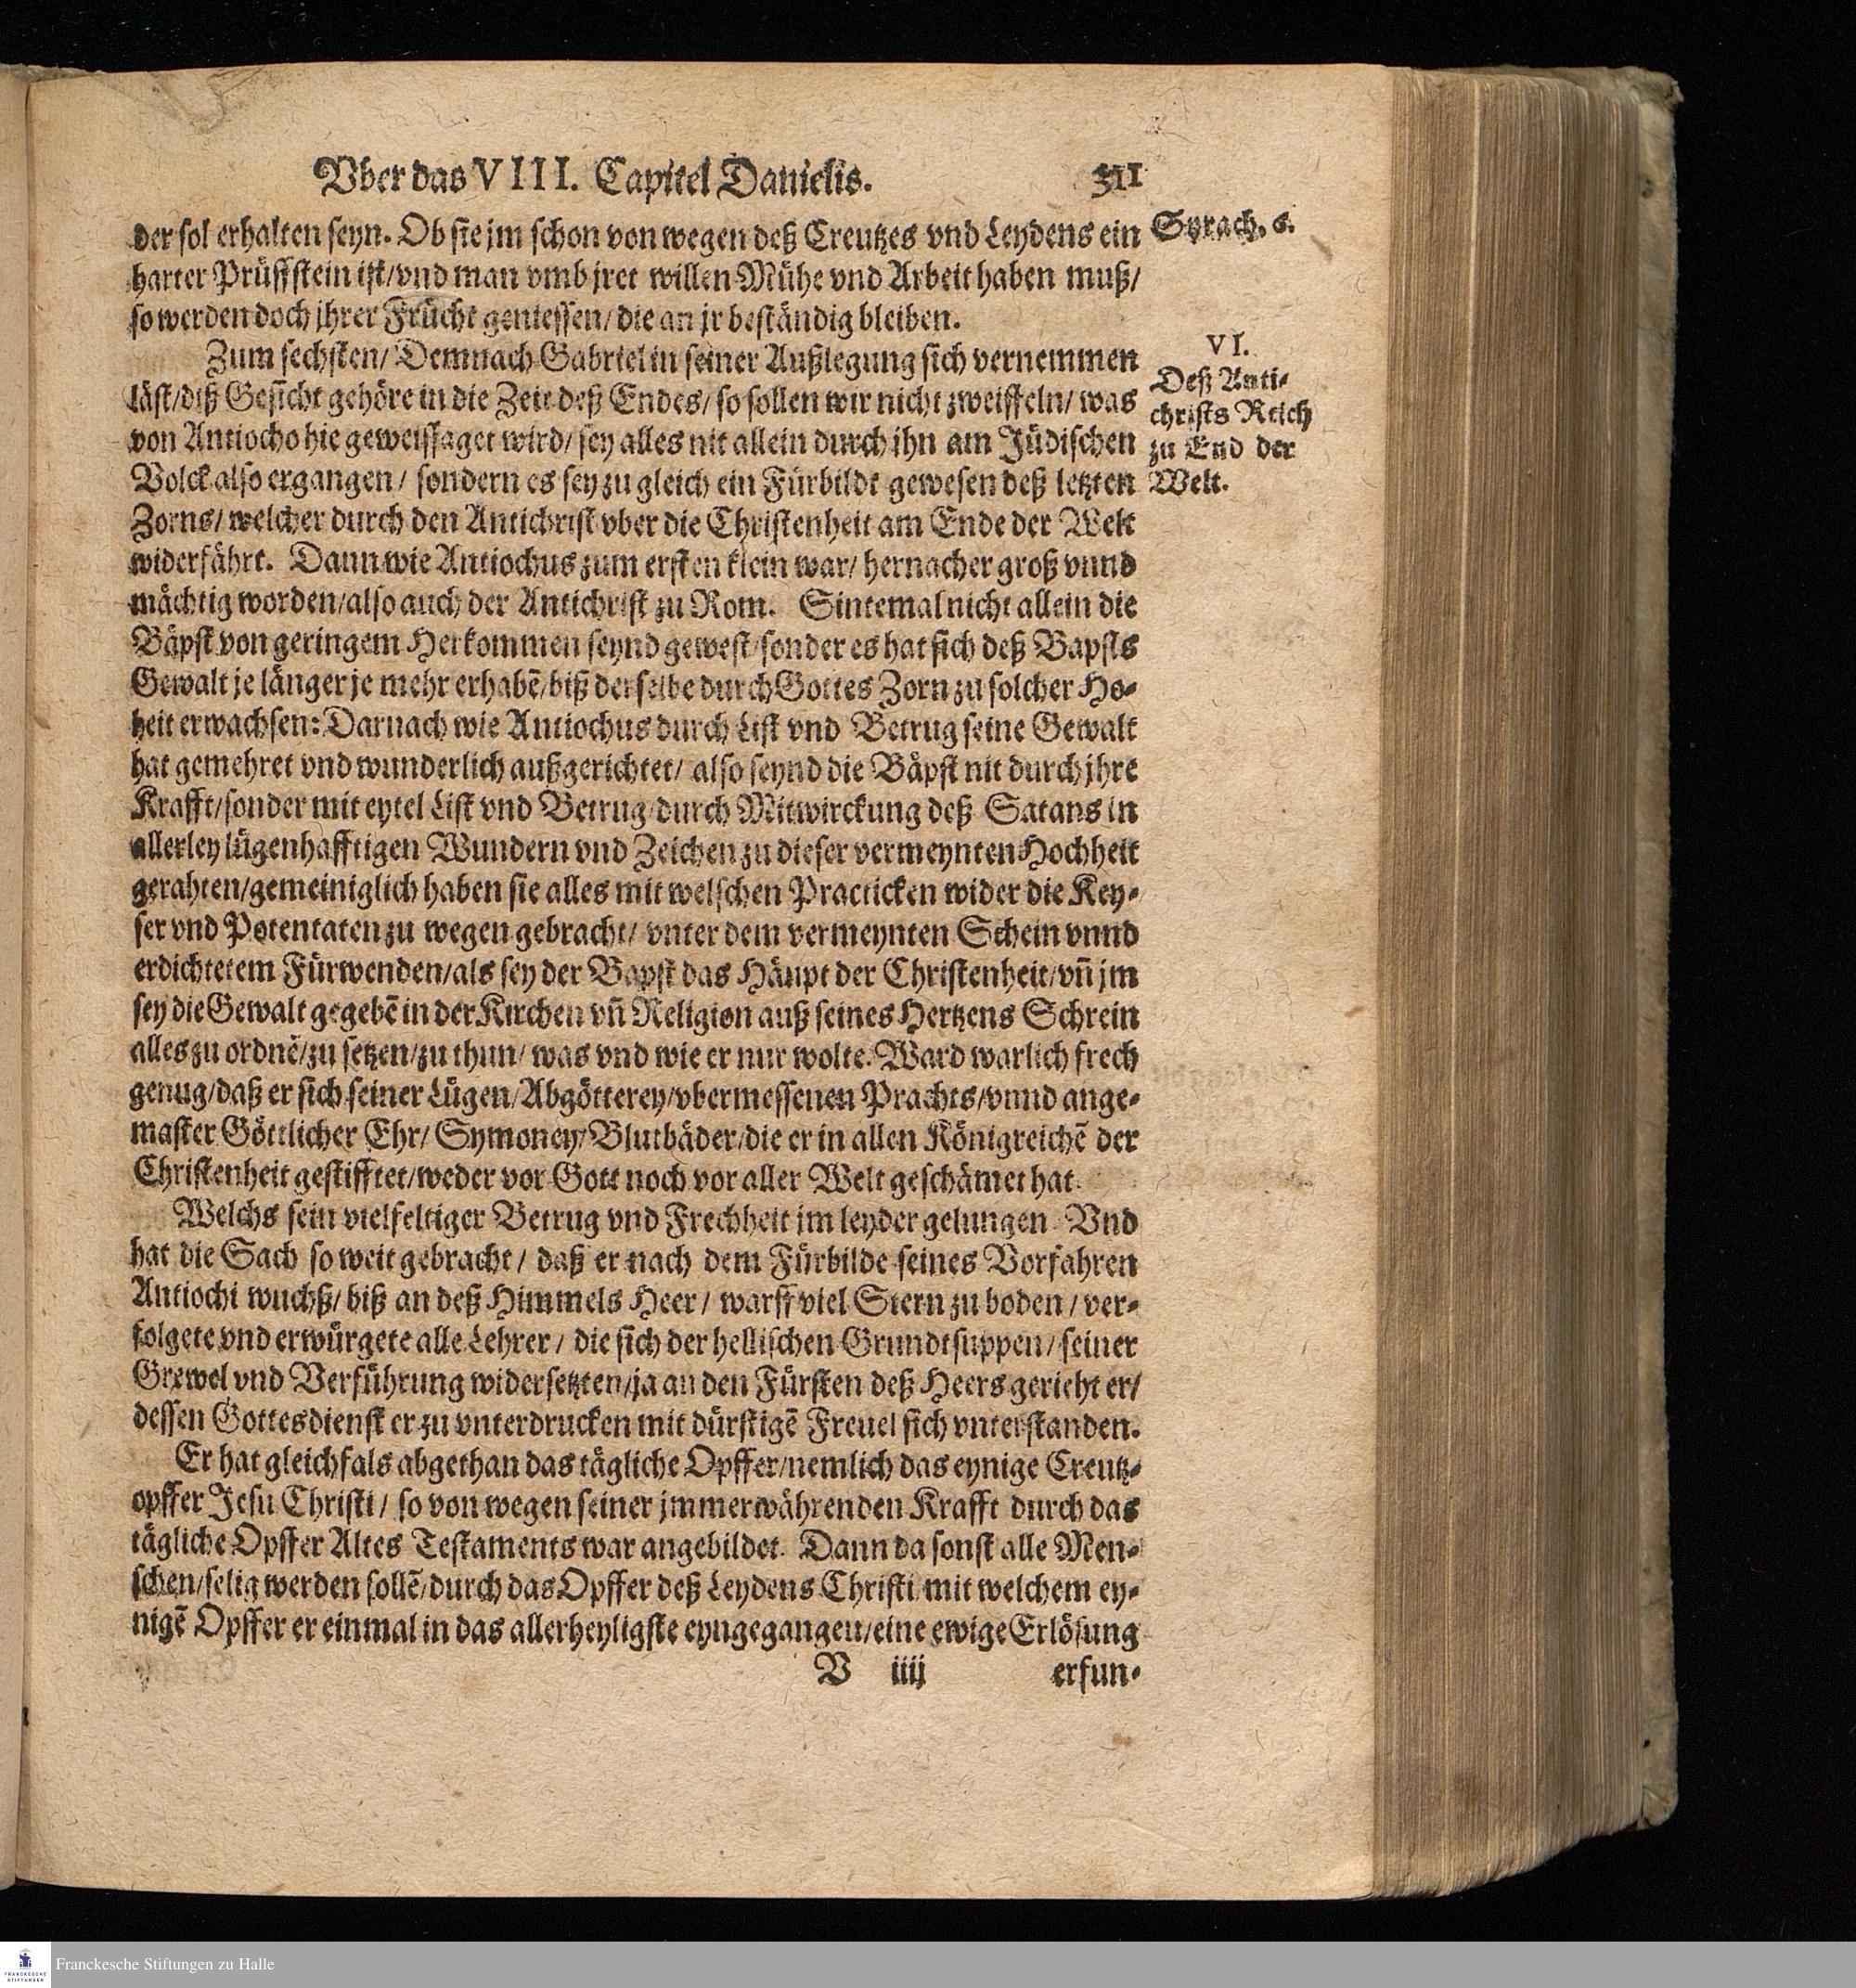 Vber das VIII. Capitel Danielis. 311
der sol erhalten seyn. Ob sie jm schon von wegen deß Creutzes vnd Leydens ein
Syrach. 6.
harter Prüffstein ist/vnd man vmb jret willen Mühe vnd Arbeit haben muß/
so werden doch jhrer Frücht geniessen/ die an jr beständig bleiben.
Zum sechsten/ Demnach Gabriel in seiner Außlegung sich vernemmen
läst/diß Gesicht gehöre in die Zeit deß Endes/ so sollen wir nicht zweiffeln/ was
von Antiocho hie geweissaget wird/ sey alles nit allein durch ihn am Jüdischen
Volck also ergangen/ sondern es sey zu gleich ein Fürbildt gewesen deß letzten
VI.
Deß Anti-
christs Reich
zu End der
Welt.
Zorns/ welcher durch den Antichrist vber die Christenheit am Ende der Welt
widerfährt. Dann wie Antiochus zum ersten klein war/ hernacher groß vnnd
mächtig worden/also auch der Antichrist zu Rom. Sintemal nicht allein die
Bäpst von geringem Herkommen seynd gewest/sonder es hat sich deß Bapsts
Gewalt je länger je mehr erhabē/biß derselbe durch Gottes Zorn zu solcher Ho-
heit erwachsen: Darnach wie Antiochus durch List vnd Betrug seine Gewalt
hat gemehret vnd wunderlich außgerichtet/ also seynd die Bäpst nit durch jhre
Krafft/sonder mit eytel List vnd Betrug/durch Mitwirckung deß Satans in
allerley lügenhafftigen Wundern vnd Zeichen zu dieser vermeynten Hochheit
gerahten/gemeiniglich haben sie alles mit welschen Practicken wider die Key-
ser vnd Potentaten zu wegen gebracht/ vnter dem vermeynten Schein vnnd
erdichtetem Fürwenden/als sey der Bapst das Häupt der Christenheit/vn̄ jm
sey die Gewalt gegebē in der Kirchen vn̄ Religion auß seines Hertzens Schrein
alles zu ordnē/zu setzen/zu thun/ was vnd wie er nur wolte. Ward warlich frech
genug/daß er sich seiner Lügen/Abgötterey/vbermessenen Prachts/vnnd ange-
master Göttlicher Ehr/ Symoney/Blutbäder/die er in allen Königreichē der
Christenheit gestifftet/weder vor Gott noch vor aller Welt geschämet hat.
Welchs sein vielfeltiger Betrug vnd Frechheit jm leyder gelungen Vnd
hat die Sach so weit gebracht/ daß er nach dem Fürbilde seines Vorfahren
Antiochi wuchß/ biß an deß Himmels Heer/ warff viel Stern zu boden/ ver-
folgete vnd erwürgete alle Lehrer/ die sich der hellischen Grundtsuppen/ seiner
Grewel vnd Verführung widersetzten/ja an den Fürsten deß Heers gerieht er/
dessen Gottesdienst er zu vnterdrucken mit dürstigē Freuel sich vnterstanden.
Er hat gleichfals abgethan das tägliche Opffer/nemlich das eynige Creutz-
opffer Jesu Christi/ so von wegen seiner jmmerwährenden Krafft durch das
tägliche Opffer Altes Testaments war angebildet. Dann da sonst alle Men-
schen/selig werden sollē/durch das Opffer deß Leydens Christi mit welchem ey-
nigē Opffer er einmal in das allerheyligste eyngegangen/eine ewige Erlösung
V iiij erfun-
Franckesche Stiftungen zu Halle